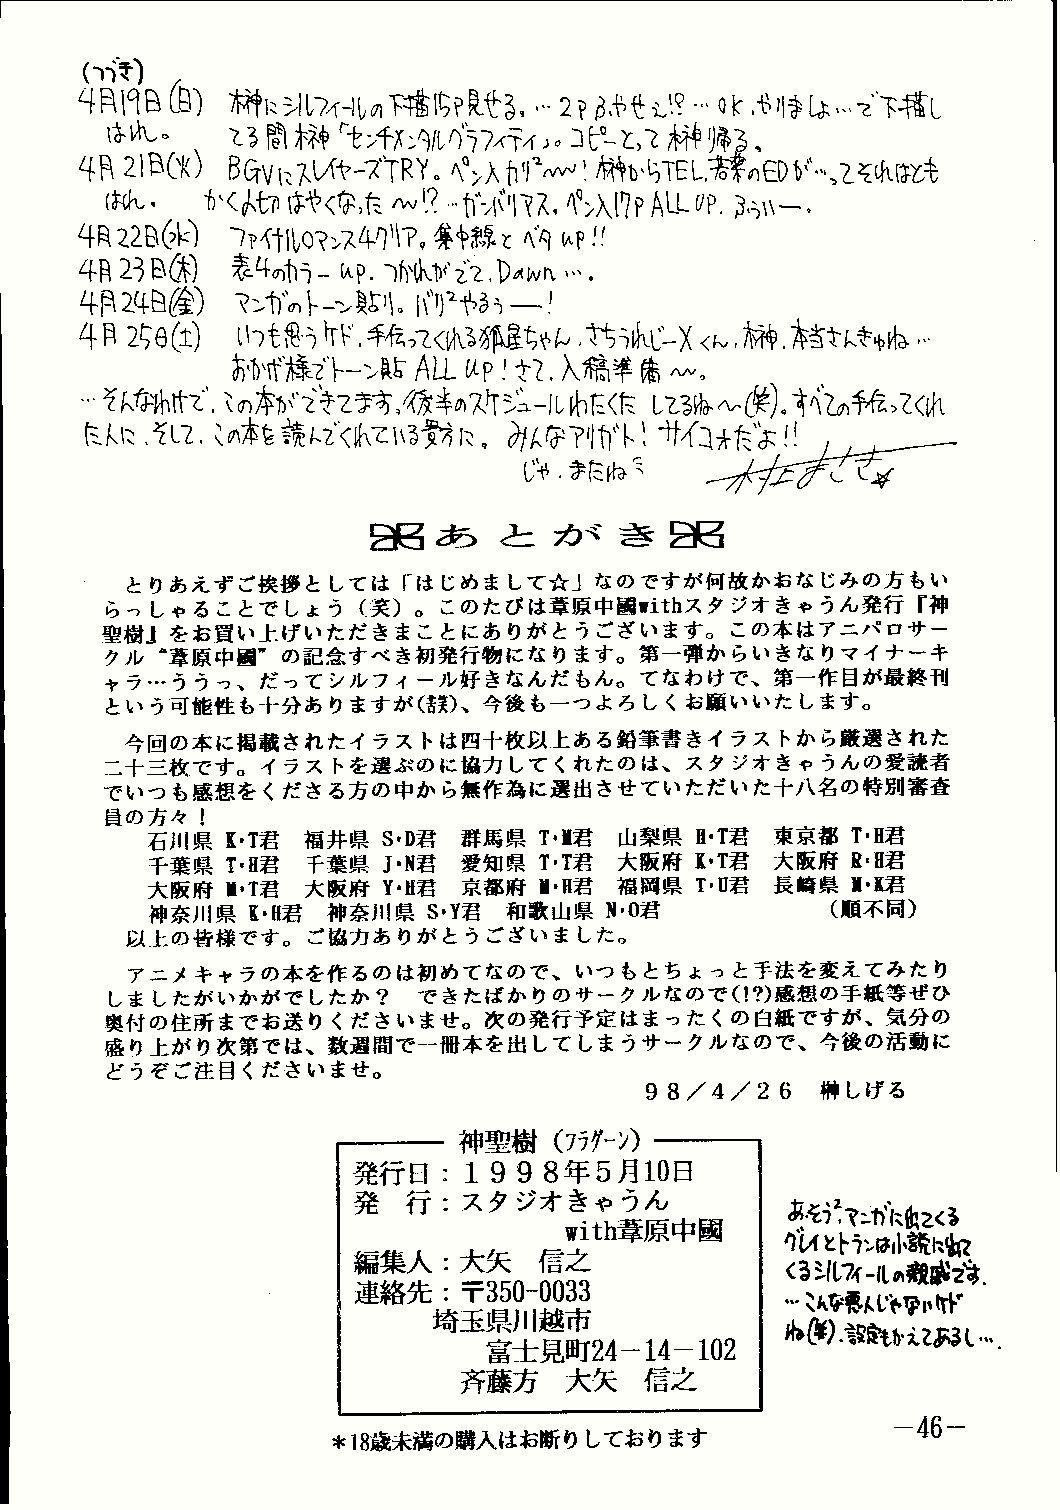 (つづき)
4月19日(日) 榊神にシルフィールの下描15P見せる。…2Pふやせぇ!?…OK、やりましょ…で下描し
はれ。 てる間榊神「センチメンタルグラフィティ」。コピーとって榊神帰る。
4月21日(火) BGVにスレイヤーズTRY。ペン入カリ²〜〜!榊神からTEL、若菜のEDが…ってそれはとも
はれ。 かく〆切はやくなった〜!?…ガンバリアス。ペン入17P ALL UP. ふぅぃー.
4月22日(水) ファイナルロマンス4クリア。集中線とベタup!!
4月23日(木) 表4のカラーup. つかれがでて、Dawn….
4月24日(金) マンガのトーン貼り。バリ²やるぅ――!
4月25日(土) いつも思うケド、手伝ってくれる狐星ちゃん、さちうれじーXくん、榊神、本当さんきゅね…
おかげ様でトーン貼ALL UP!さて、入稿準備〜。
…そんなわけで、この本ができてます。後半のスケジュールわたくたしてるね〜(笑)。すべての手伝ってくれ
た人に、そして、この本を読んでくれている貴方に。みんなアリガト!サイコォだよ!!
じゃ、またねミ
あとがき
とりあえずご挨拶としては「はじめまして☆」なのですが何故かおなじみの方もい
らっしゃることでしょう(笑)。このたびは葦原中國withスタジオきゃうん発行『神
聖樹』をお買い上げいただきまことにありがとうございます。この本はアニパロサー
クル“葦原中國”の記念すべき初発行物になります。第一弾からいきなりマイナーキ
ャラ…ううっ、だってシルフィール好きなんだもん。てなわけで、第一作目が最終刊
という可能性も十分ありますが(苦笑)、今後も一つよろしくお願いいたします。
今回の本に掲載されたイラストは四十枚以上ある鉛筆書きイラストから厳選された
二十三枚です。イラストを選ぶのに協力してくれたのは、スタジオきゃうんの愛読者
でいつも感想をくださる方の中から無作為に選出させていただいた十八名の特別審査
員の方々!
石川県 K・T君 福井県 S・D君 群馬県 T・M君 山梨県 H・T君 東京都 T・H君
千葉県 T・H君 千葉県 J・N君 愛知県 T・T君 大阪府 K・T君 大阪府 R・H君
大阪府 M・T君 大阪府 Y・H君 京都府 M・H君 福岡県 T・U君 長崎県 M・K君
神奈川県 K・H君 神奈川県 S・Y君 和歌山県 N・O君 (順不同)
以上の皆様です。ご協力ありがとうございました。
アニメキャラの本を作るのは初めてなので、いつもとちょっと手法を変えてみたり
しましたがいかがでしたか? できたばかりのサークルなので(!?)感想の手紙等ぜひ
奥付の住所までお送りくださいませ。次の発行予定はまったくの白紙ですが、気分の
盛り上がり次第では、数週間で一冊本を出してしまうサークルなので、今後の活動に
どうぞご注目くださいませ。
98/4/26 榊しげる
神聖樹(フラグーン)
発行日:1998年5月10日
発 行:スタジオきゃうん
with葦原中國
編集人:大矢 信之
連絡先:〒350-0033
埼玉県川越市
富士見町24-14-102
斉藤方 大矢 信之
*18歳未満の購入はお断りしております
あ、そう²、マンガに出てくる
グレイとトランは小説に出て
くるシルフィールの親戚です.
…こんな悪人じゃないケド
ね(笑)、設定もかえてあるし….
-46-